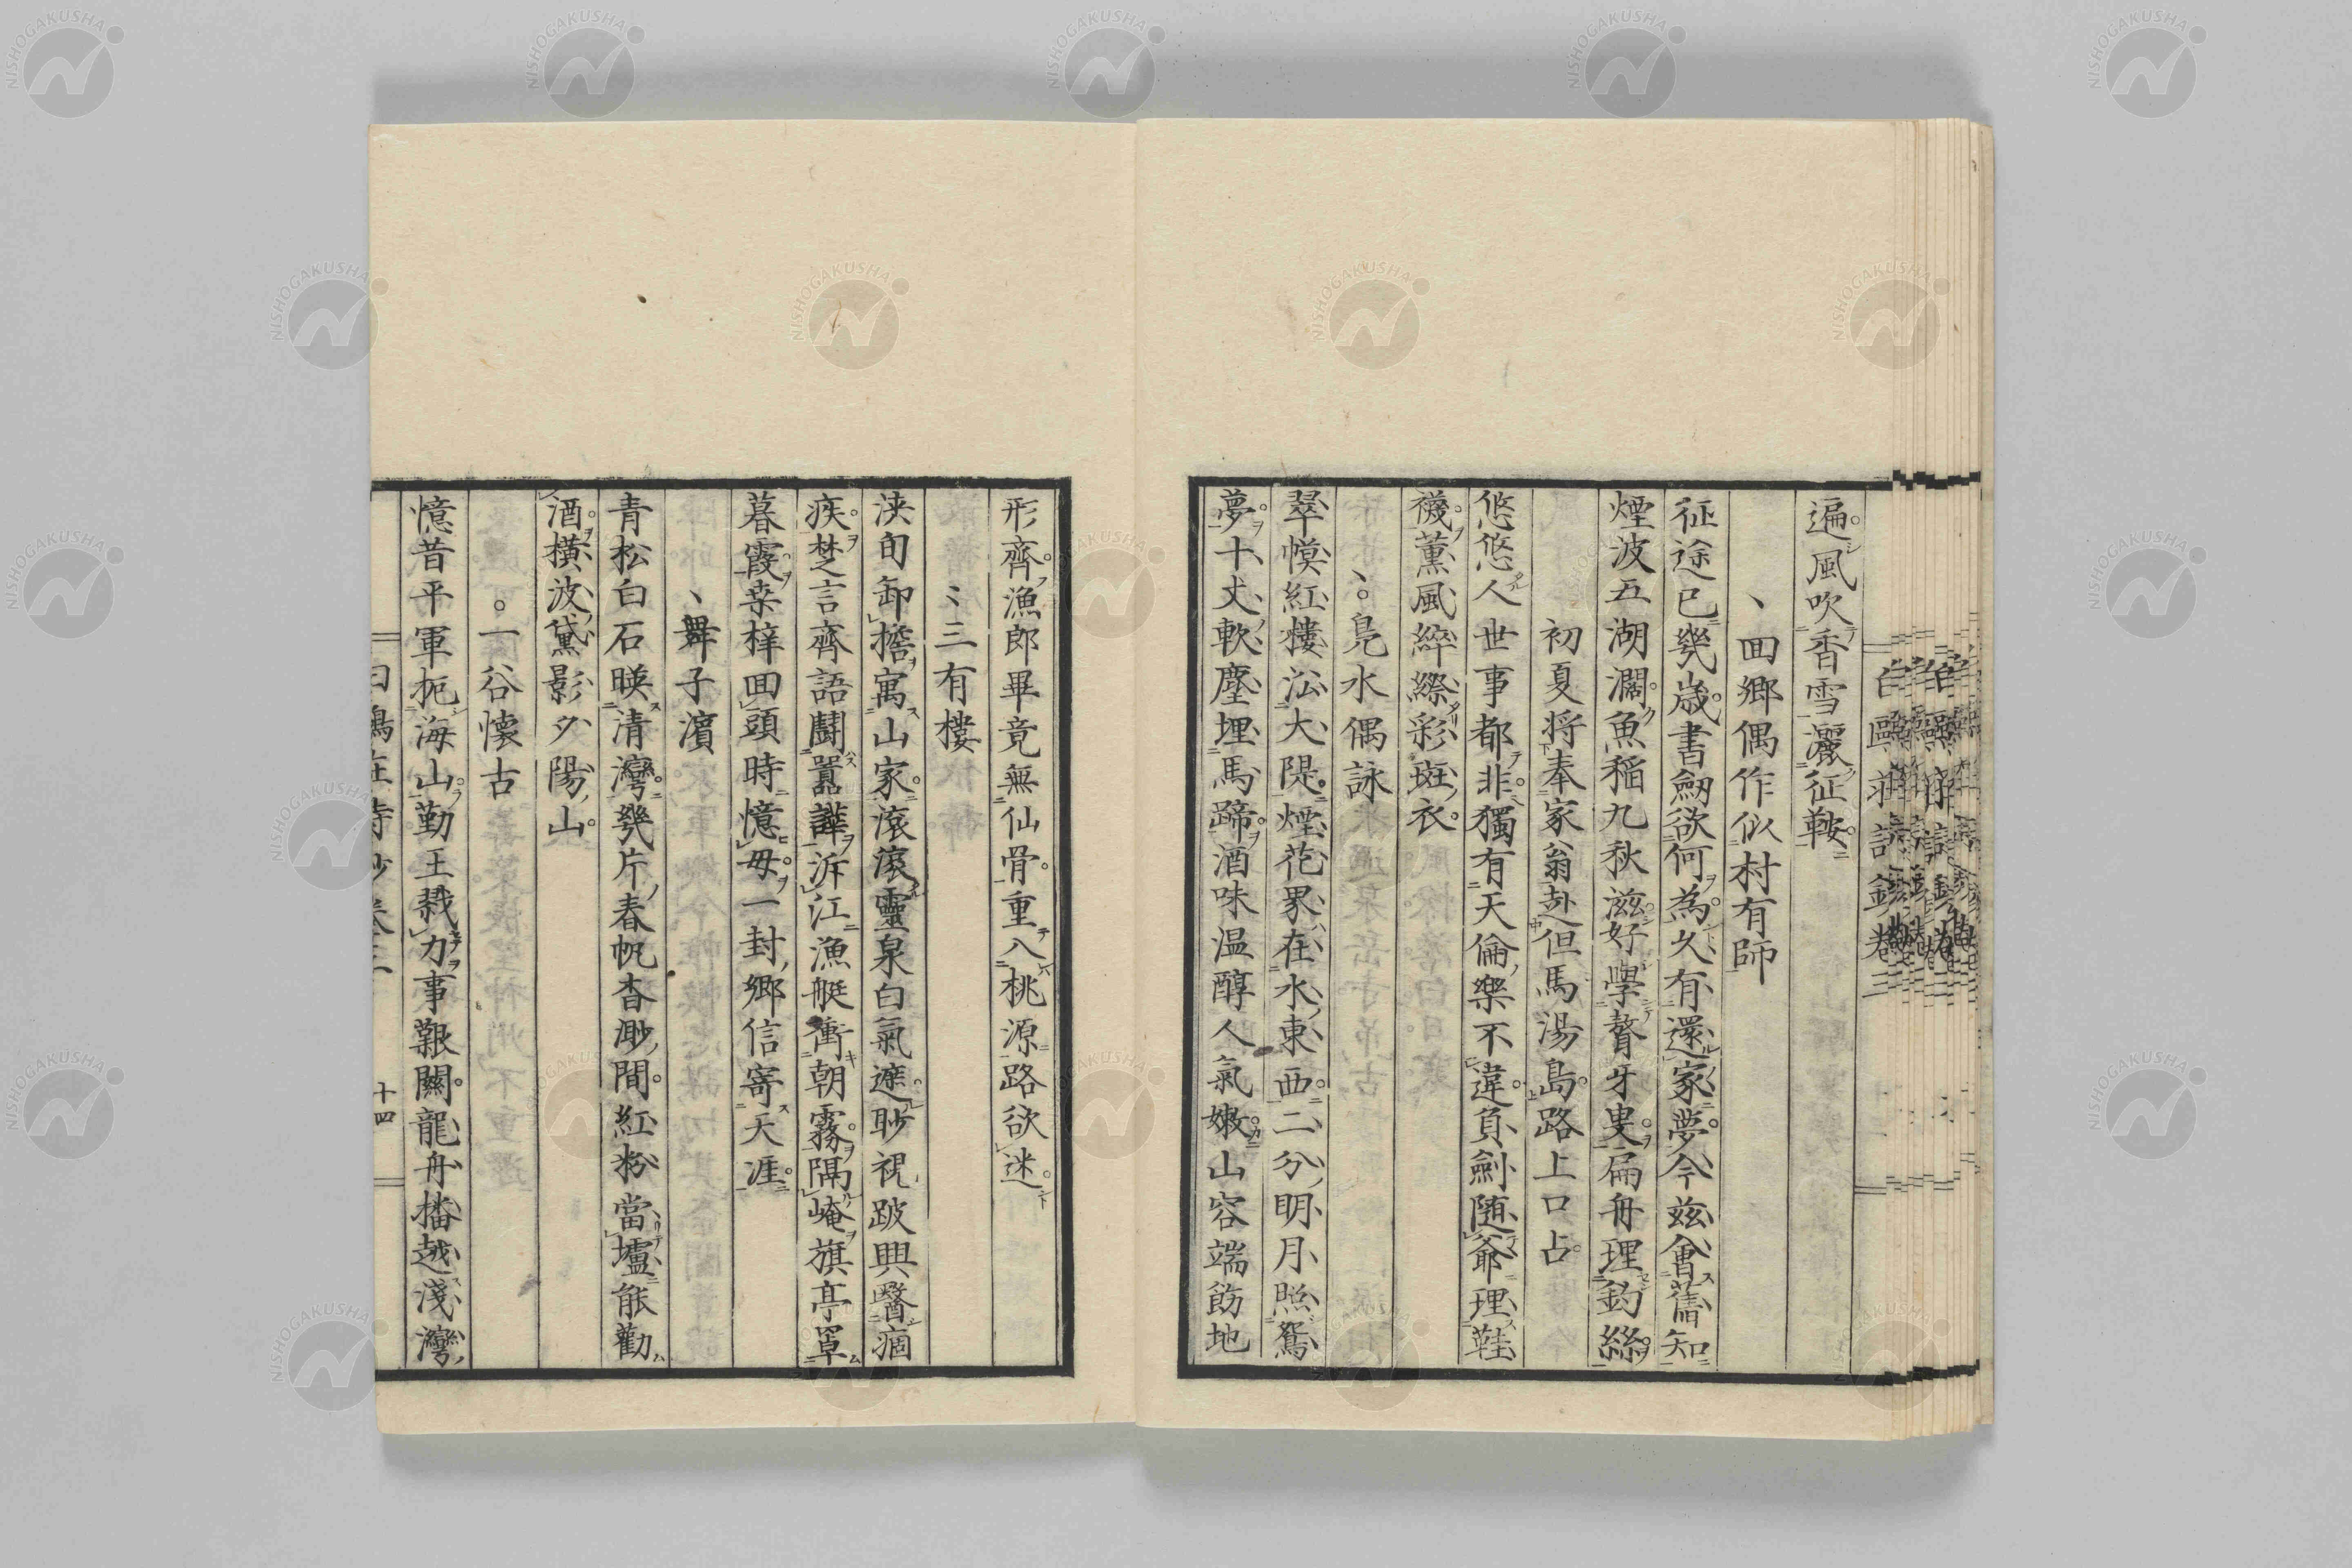 遍風吹香雪灑征鞍
回鄉偶作似村有師
征途已幾歲書劒欲何為久有還家夢今茲會舊知
煙波五湖濶魚稻九秋滋好學聱牙叟扁舟理釣絲
初夏将奉家翁赴但馬湯島路上口占
悠悠人世事都非獨有天倫樂不違負劍随爺理鞋
襪薰風綷縩彩斑衣
鳧水偶詠
翠幙紅樓沿大隄煙花界在水東西二分明月照鴛
夢十丈軟塵埋馬蹄酒味温醇人氣嫩山容端飭地
形齊漁郎畢竟無仙骨重入桃源路欲迷
三有樓
浹旬卸擔寓山家滾滾靈泉白氣遮眇視跛興醫痼
疾楚言齊語鬪囂譁泝江漁艇衝朝霧隔崦旗亭罩
暮霞桒梓回頭時憶母一封鄉信寄天涯
舞子濱
青松白石暎清灣幾片春帆杳渺間紅粉當壚能勸
酒橫波黛影夕陽山
一谷懷古
憶昔平軍扼海山勤王戮力事艱關龍舟播越淺灣
十四